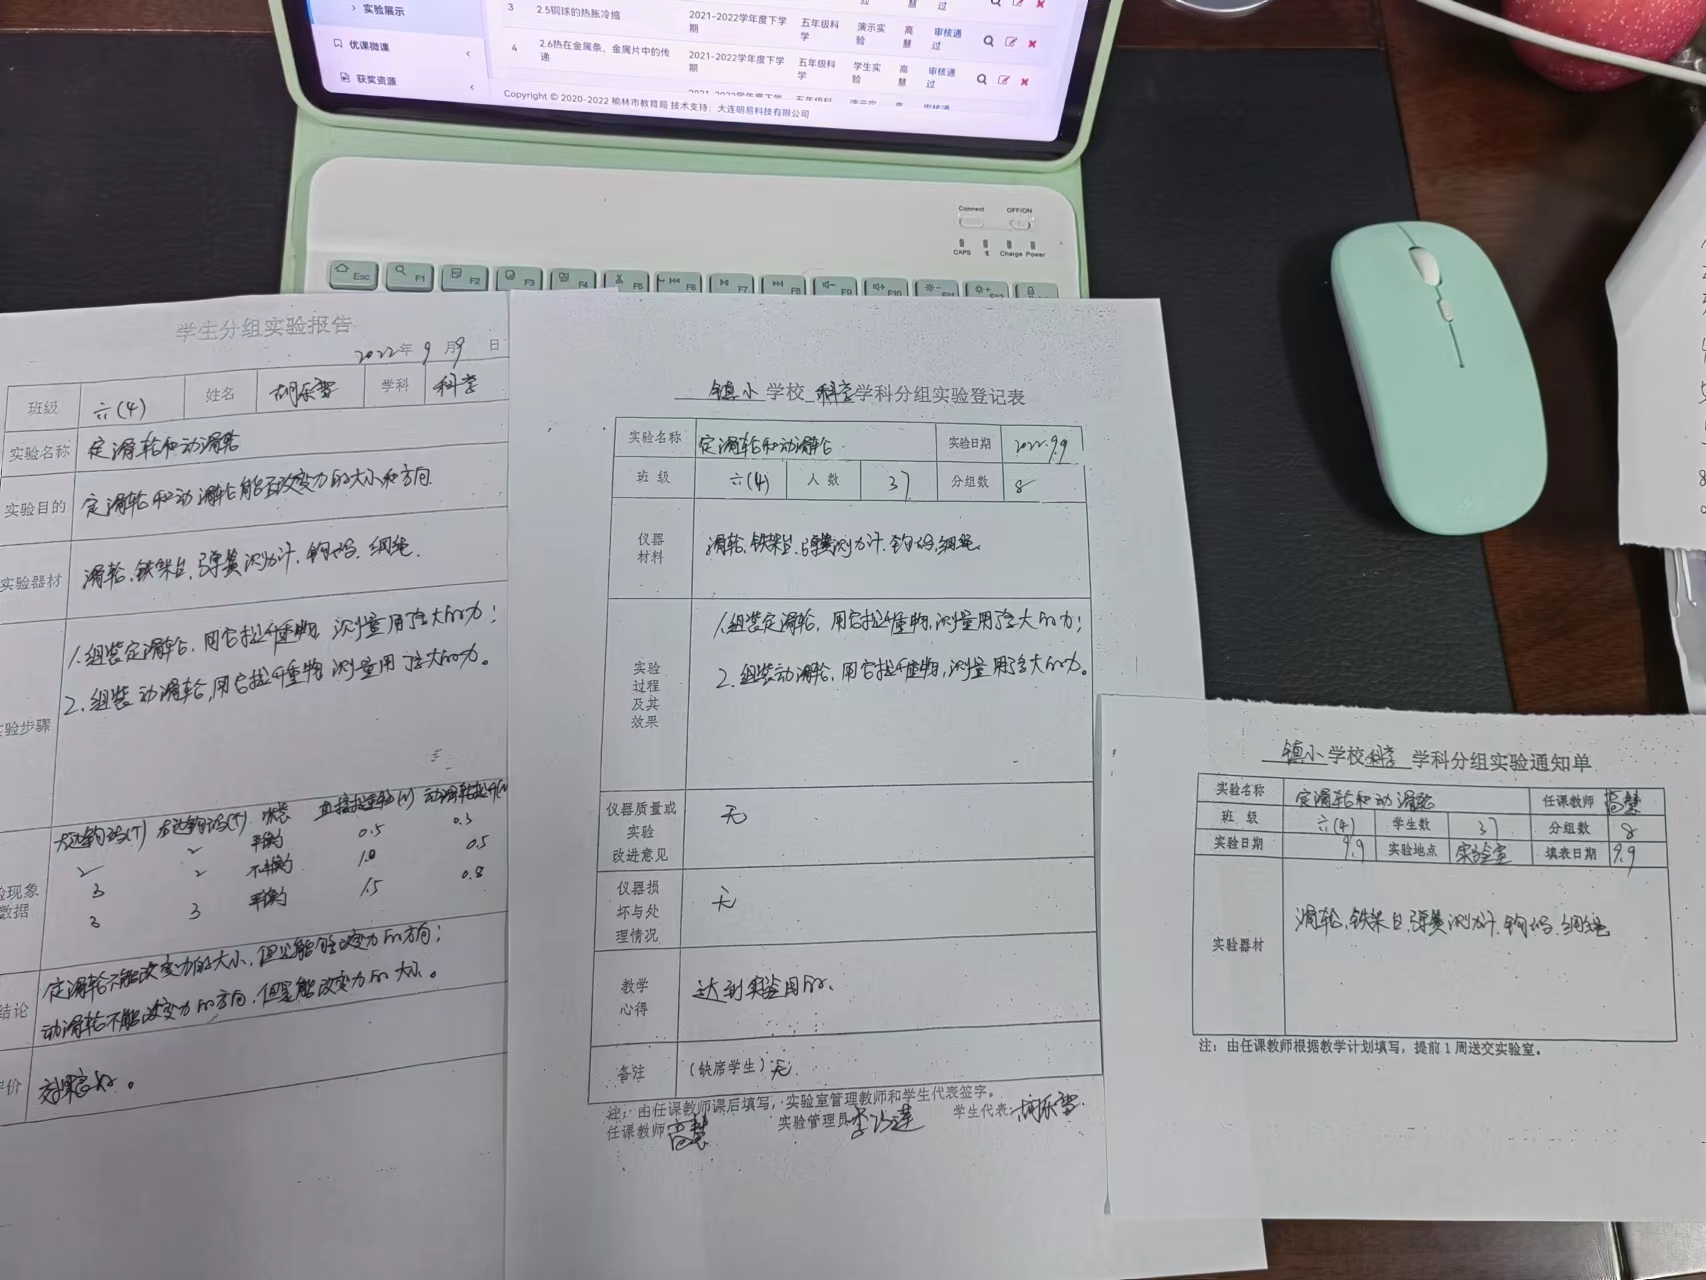 实验展示
优课微课
获奖资源
3 2.5铜球的热胀冷缩 2021-2022学年度下学期 五年级科学 演示实验 高慧 审核通过
4 2.6热在金属条、金属片中的传递 2021-2022学年度下学期 五年级科学 学生实验 高慧 审核通过
Copyright © 2020-2022 榆林市教育局 技术支持：大连明易科技有限公司
Connect OFF/ON
CAPS Charge Power
Esc F1 F2 F3 F4 F5 F6 F7 F8 F9 F10 F11 F12
学生分组实验报告
2022年 9月9日
班级 六(4) 姓名 胡乐雪 学科 科学
实验名称 定滑轮和动滑轮
实验目的 定滑轮和动滑轮能否改变力的大小和方向.
实验器材 滑轮、铁架台、弹簧测力计、钩码、细绳.
验步骤
1.组装定滑轮，用它拉升重物，测量用了多大的力；
2.组装动滑轮，用它拉升重物，测量用了多大的力。
验现象
数据
左边钩码(个) 右边钩码(个) 状态 直接拉重物(N) 动滑轮拉升(N
2 2 平衡 0.5 0.3
3 2 不平衡 1.0 0.5
3 3 平衡 1.5 0.8
结论
定滑轮不能改变力的大小，但是能够改变力的方向；
动滑轮不能改变力的方向，但是能改变力的大小。
价 效果良好。
镇小 学校 科学 学科分组实验登记表
实验名称 定滑轮和动滑轮 实验日期 2022.9.9
班级 六(4) 人数 37 分组数 8
仪器
材料
滑轮、铁架台、弹簧测力计、钩码、细绳
实验
过程
及其
效果
1.组装定滑轮，用它拉升重物，测量用了多大的力；
2.组装动滑轮，用它拉升重物，测量用了多大的力。
仪器质量或
实验
改进意见
无
仪器损
坏与处
理情况
无
教学
心得
达到实验目的.
备注 (缺席学生) 无.
注：由任课教师课后填写，实验室管理教师和学生代表签字。
任课教师 高慧 实验管理员 学生代表：胡乐雪
镇小 学校 科学 学科分组实验通知单
实验名称 定滑轮和动滑轮 任课教师 高慧
班级 六(4) 学生数 37 分组数 8
实验日期 9.9 实验地点 实验室 填表日期 9.9
实验器材 滑轮、铁架台、弹簧测力计、钩码、细绳
注：由任课教师根据教学计划填写，提前1周送交实验室。